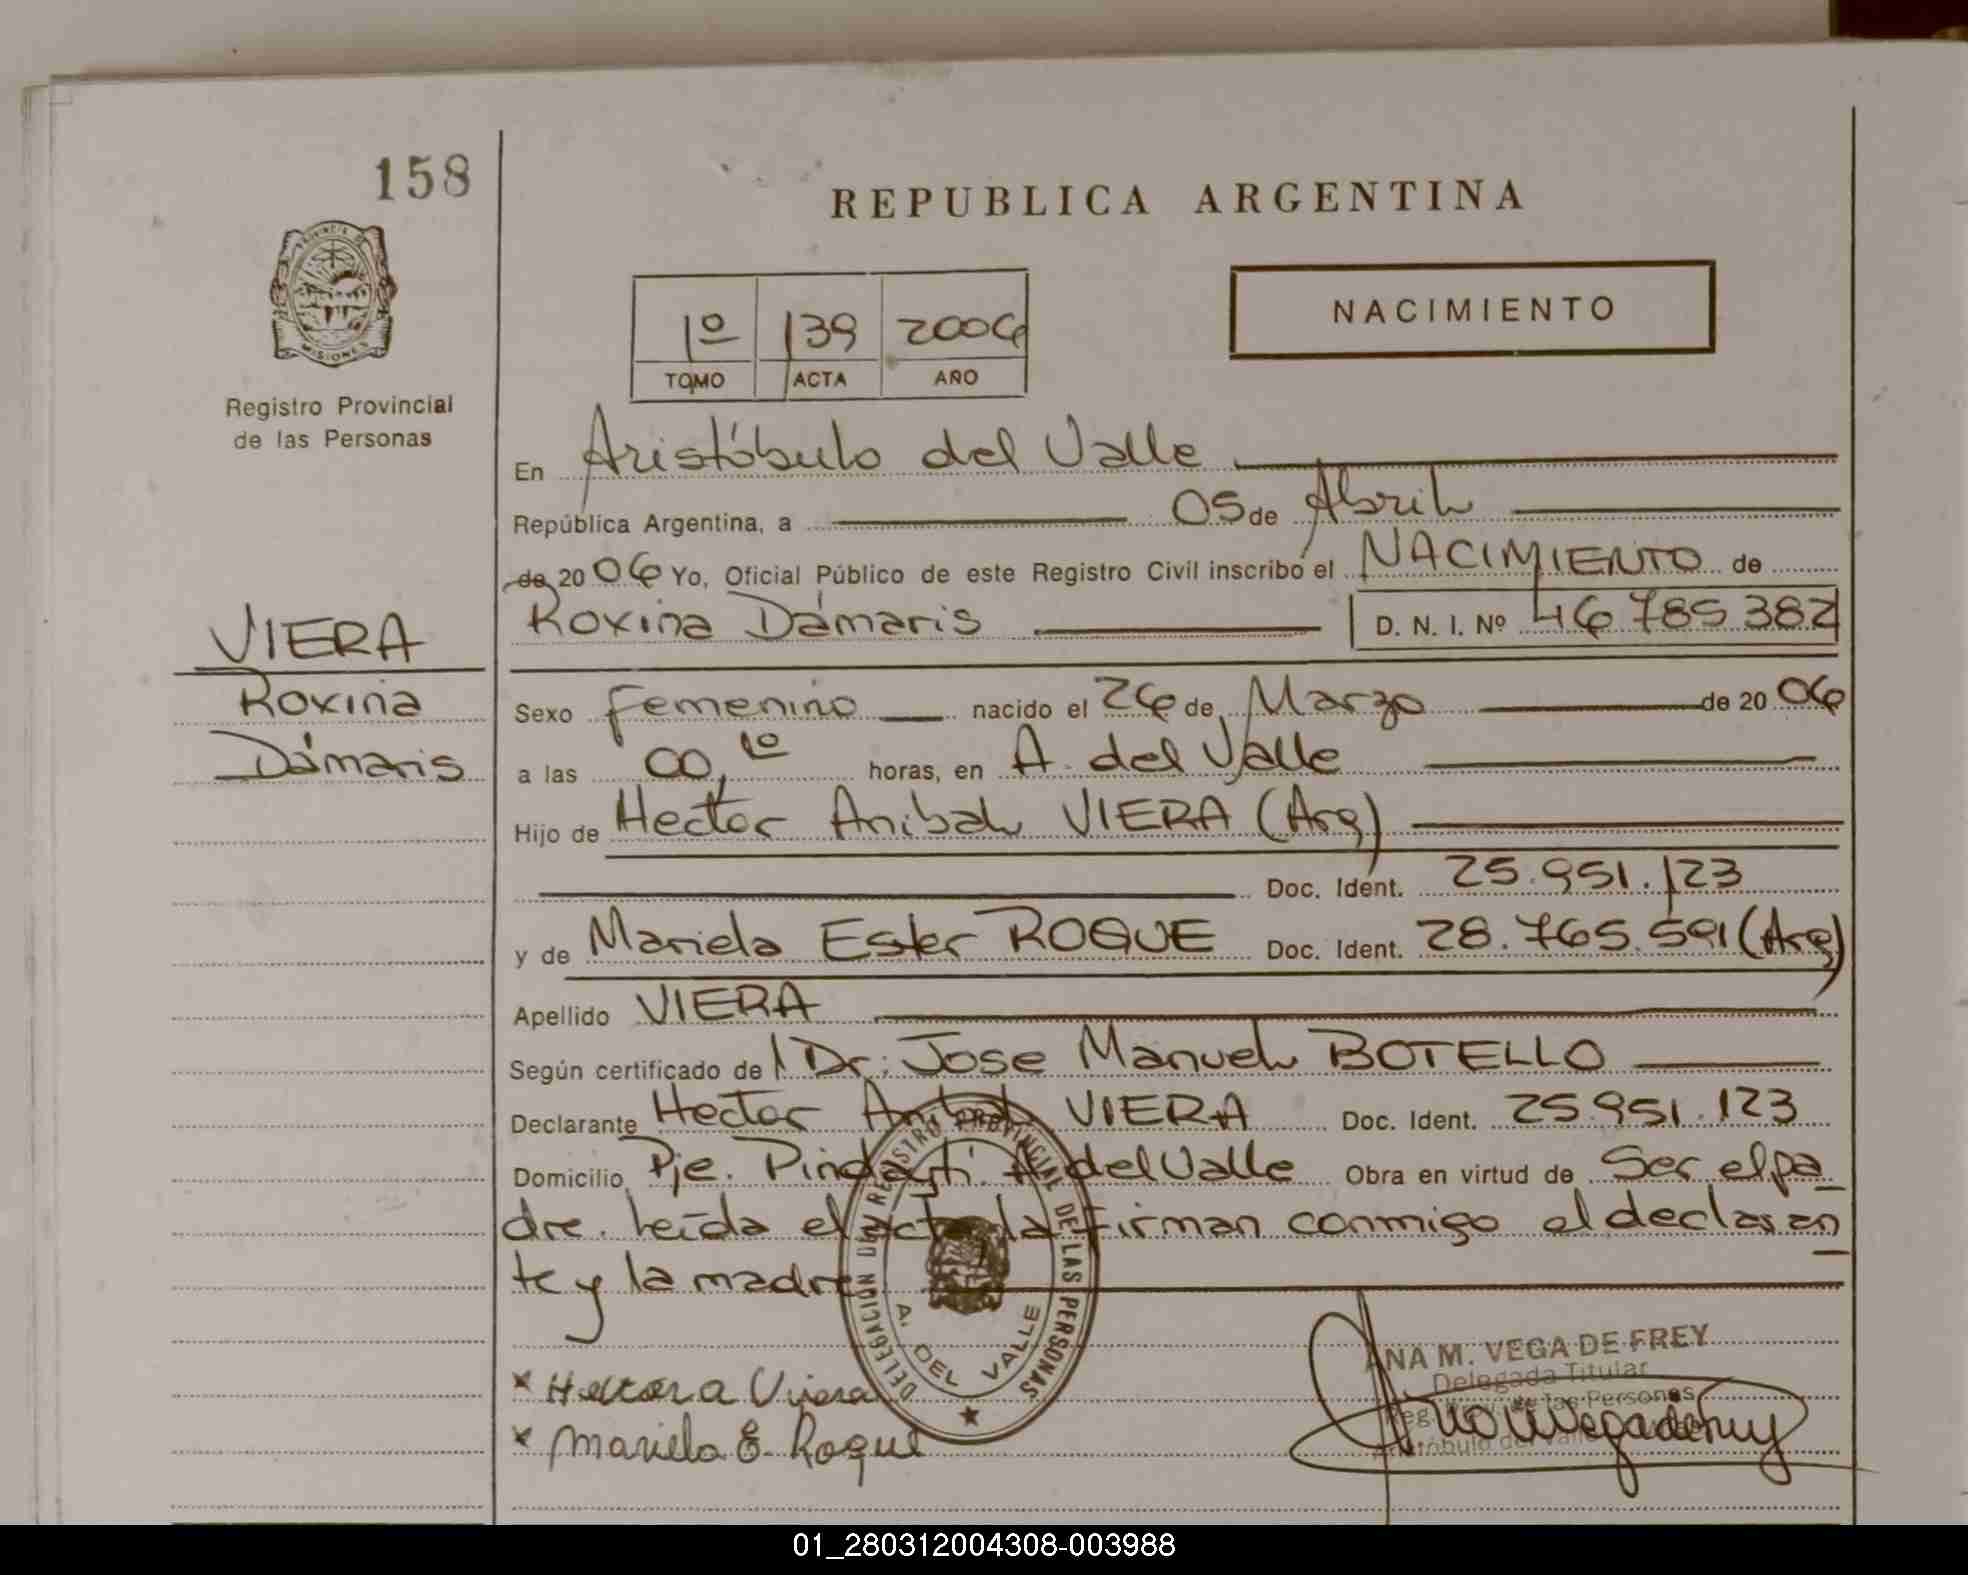 158
REPUBLICA ARGENTINA
PROVINCIA DE
MISIONES
NACIMIENTO
1º 139 2006
TOMO ACTA AÑO
Registro Provincial
de las Personas
En Aristóbulo del Valle
República Argentina, a 05 de Abril
de 2006 Yo, Oficial Público de este Registro Civil inscribo el NACIMIENTO de
VIERA
Roxina Dámaris D. N. I. Nº 46 785 382
Roxina
Dámaris
Sexo Femenino nacido el 26 de Marzo de 2006
a las 00,10 horas, en A. del Valle
Hijo de Hector Anibal VIERA (Arg)
Doc. Ident. 25.951.123
y de Mariela Ester ROQUE Doc. Ident. 28.765.591 (Arg)
Apellido VIERA
Según certificado de l Dr: Jose Manuel BOTELLO
Declarante Hector Anibal VIERA Doc. Ident. 25.951.123
Domicilio Pje. A del Valle Obra en virtud de Ser el pa
dre. Leída el acta la firman conmigo el declaran
te y la madre
DELEGACION DEL REGISTRO PROVINCIAL DE LAS PERSONAS
A. DEL VALLE
Hector A Viera
Mariela E. Roque
ANA M. VEGA DE FREY
Delegada Titular
Reg. de las Personas
Aristóbulo del Valle
01_280312004308-003988